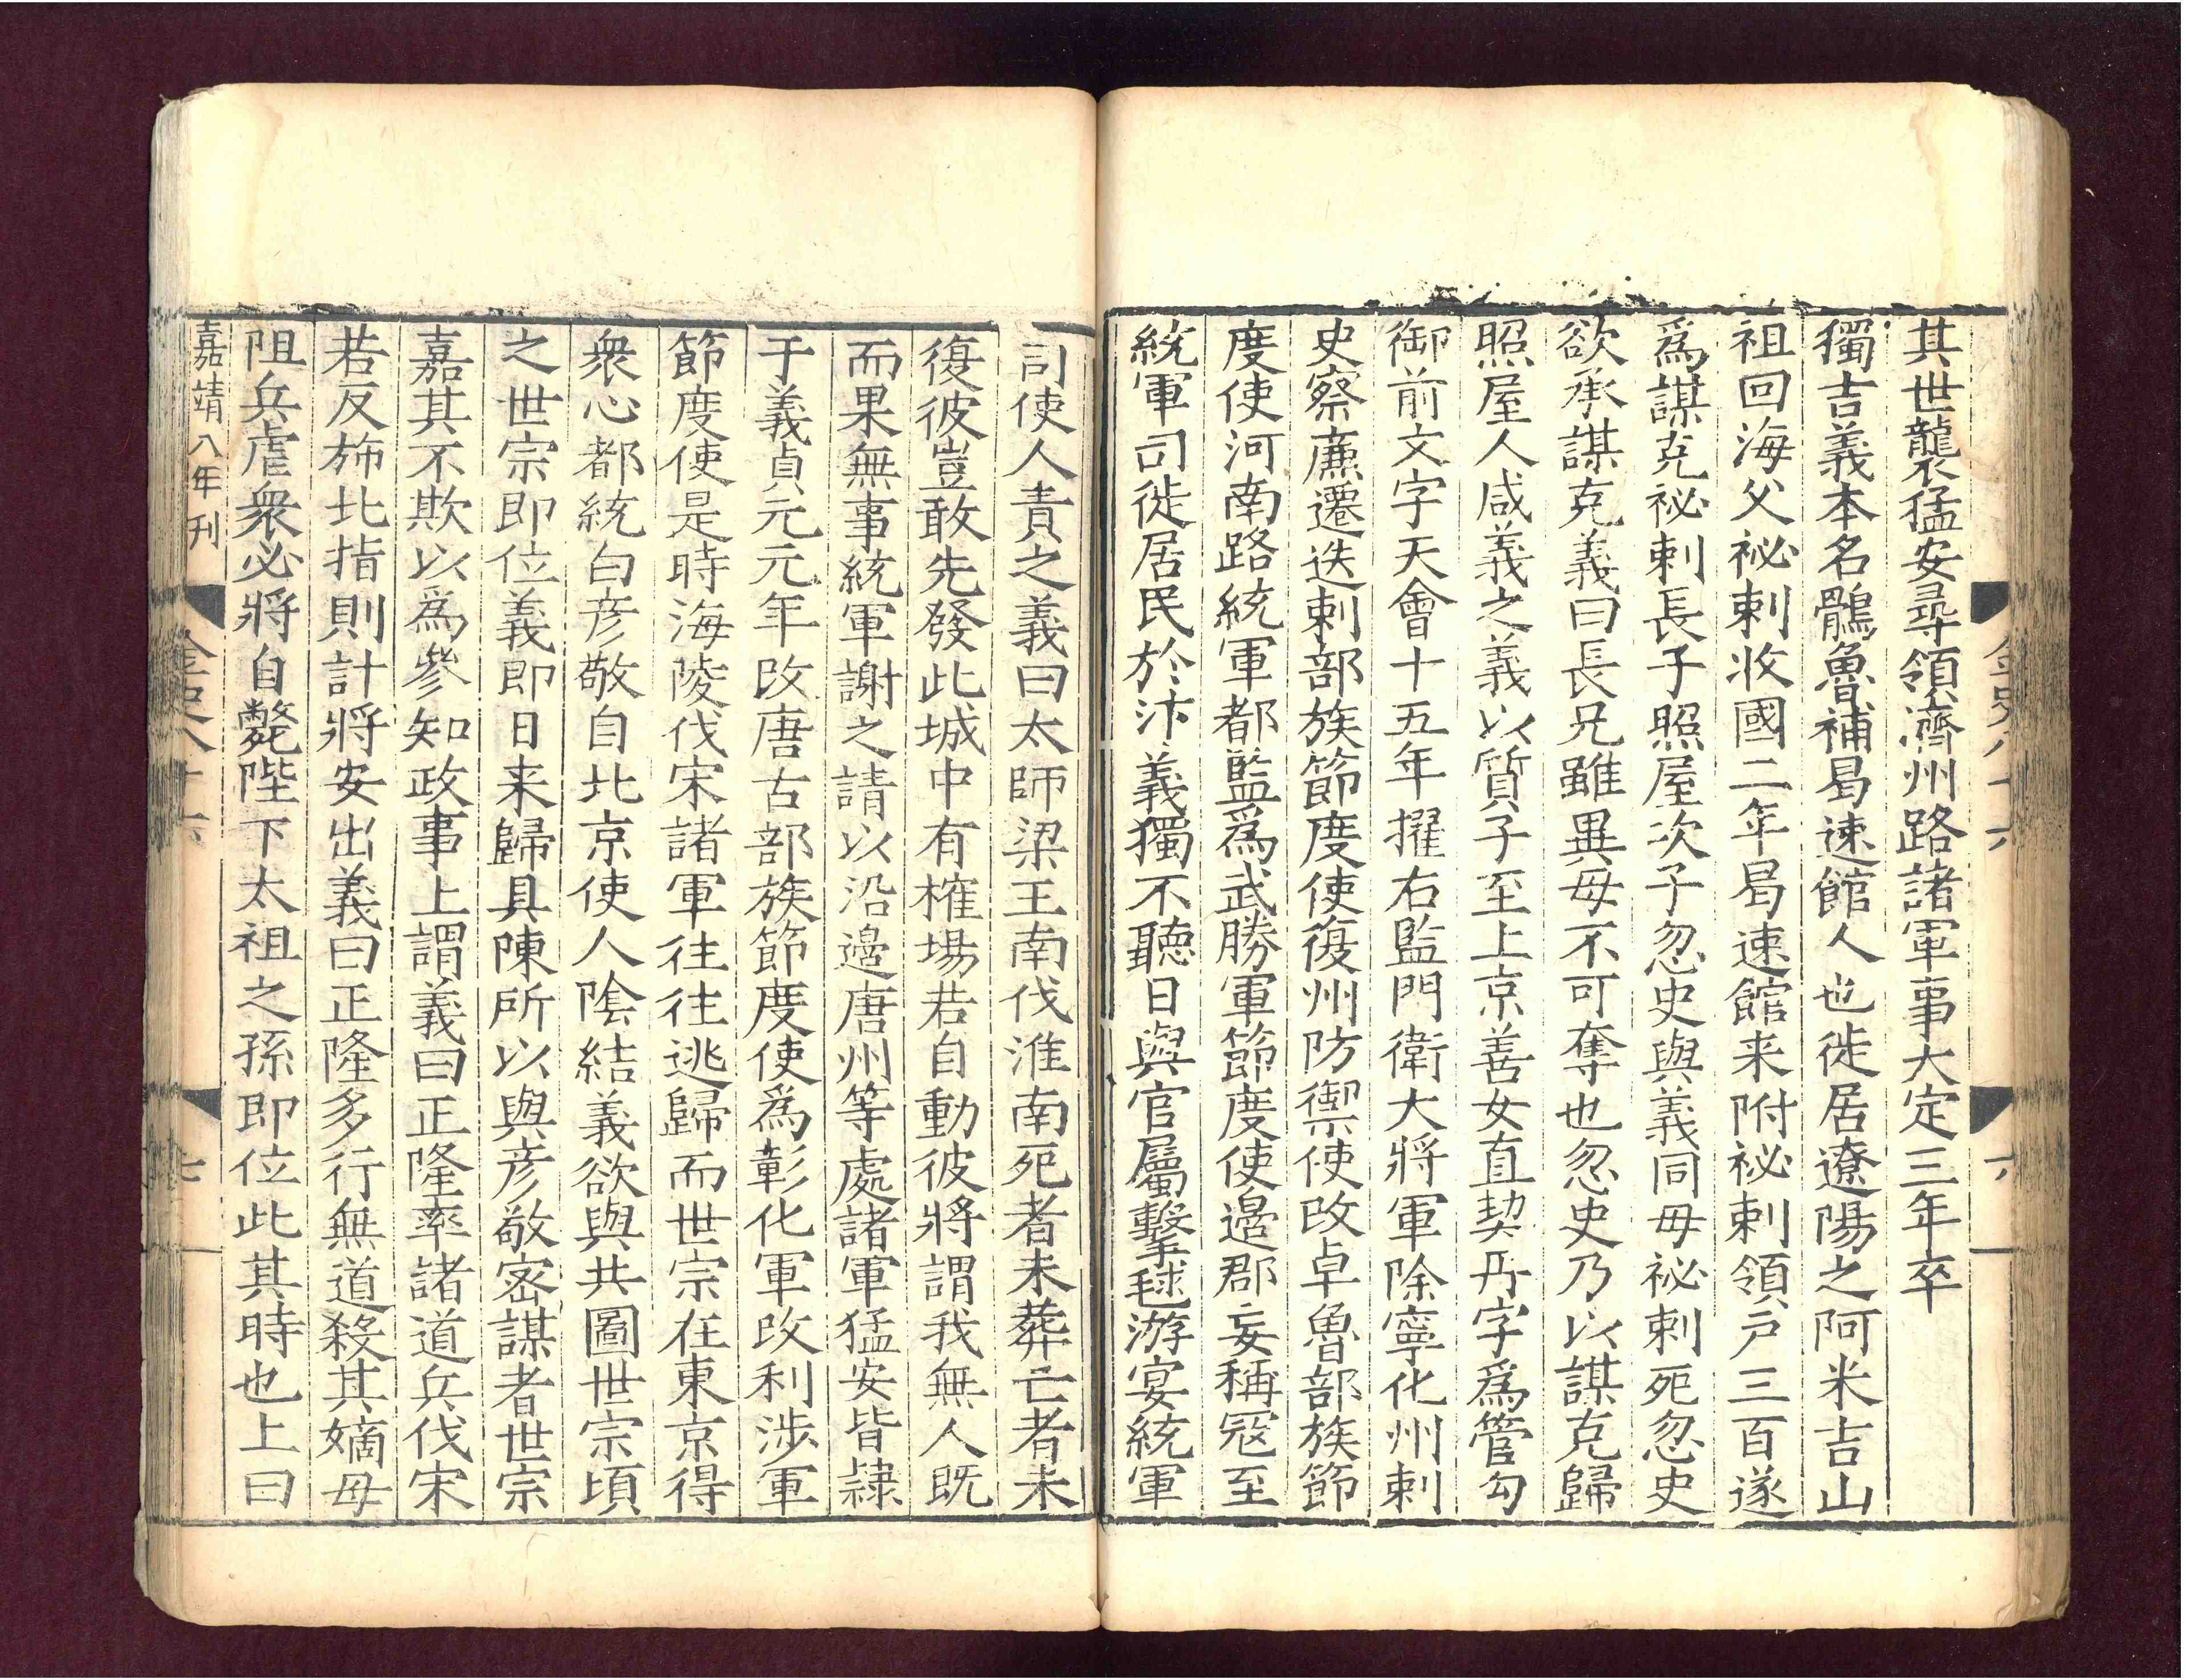 其世襲猛安尋領濟州路諸軍事大定三年卒
獨吉義本名鶻魯補曷速館人也徙居遼陽之阿米吉山
祖回海父祕剌收國二年曷速館来附祕剌領户三百遂
爲謀克祕剌長子照屋次子忽史與義同母祕剌死忽史
欲承謀克義曰長兄雖異母不可奪也忽史乃以謀克歸
照屋人咸義之義以質子至上京善女直契丹字爲管勾
御前文字天會十五年擢右監門衛大將軍除寧化州剌
史察廉遷迭剌部族節度使復州防禦使改卓魯部族節
度使河南路統軍都監爲武勝軍節度使邉郡妄稱冦至
統軍司徙居民於汴義獨不聽日與官屬擊毬游宴統軍
司使人責之義曰太師梁王南伐淮南死者未葬亡者未
復彼豈敢先發此城中有榷場若自動彼將謂我無人既
而果無事統軍謝之請以沿邉唐州等處諸軍猛安皆隸
于義貞元元年改唐古部族節度使爲彰化軍改利涉軍
節度使是時海陵伐宋諸軍往往逃歸而世宗在東京得
衆心都統白彦敬自北京使人隂結義欲與共圖世宗頃
之世宗即位義即日来歸具陳所以與彦敬密謀者世宗
嘉其不欺以爲參知政事上謂義曰正隆率諸道兵伐宋
若反斾北指則計將安出義曰正隆多行無道殺其嫡母
阻兵虐衆必將自斃陛下太祖之孫即位此其時也上曰
嘉靖八年刊
金史八十六
七